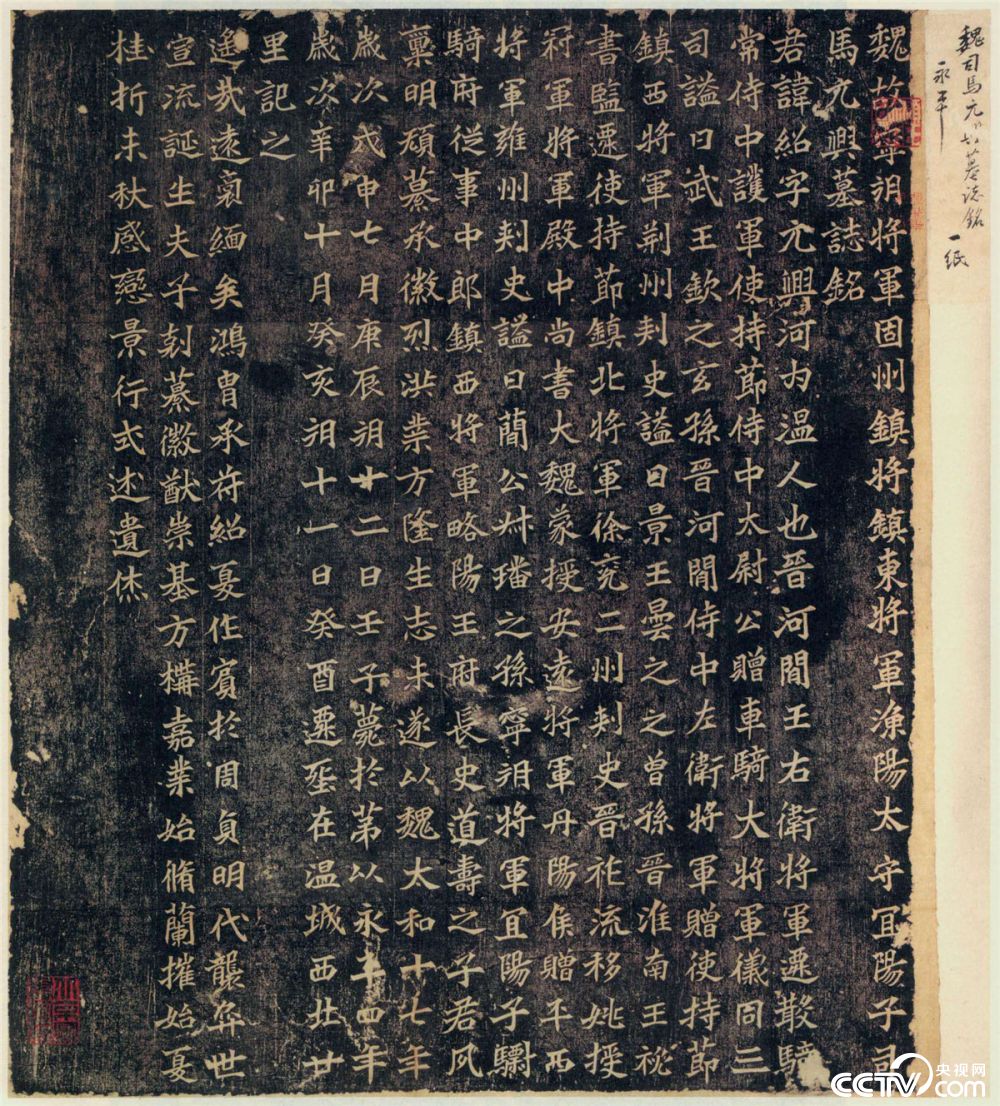 魏司馬元興墓誌銘 一紙
永平
魏故寧朔將軍固州鎮將鎮東將軍漁陽太守宜陽子司
馬元興墓誌銘
君諱紹字元興河內温人也晉河間王右衛將軍遷散騎
常侍中護軍使持節侍中太尉公贈車騎大將軍儀同三
司謚曰武王欽之玄孫晉河間侍中左衛將軍贈使持節
鎮西將軍荊州刺史謚曰景王曇之之曾孫晉淮南王秘
書監遷使持節鎮北將軍徐兗二州刺史晉祚流移姚授
冠軍將軍殿中尚書大魏蒙授安遠將軍丹陽侯贈平西
將軍雍州刺史謚曰簡公叔璠之孫寧朔將軍宜陽子驃
騎府從事中郎鎮西將軍略陽王府長史道壽之子君夙
稟明頎纂承徽烈洪業方隆生志未遂以魏太和十七年
歲次戊申七月庚辰朔廿二日壬子薨於第以永平四年
歲次辛卯十月癸亥朔十一日癸酉遷塟在温城西北廿
里記之
遙哉遠裔緬矣鴻胄承符紹夏作賓於周貞明代襲弈世
宣流誕生夫子剋纂徽猷崇基方構嘉業始脩蘭摧始夏
桂折未秋感戀景行式述遺休
央视网
CCTV.com